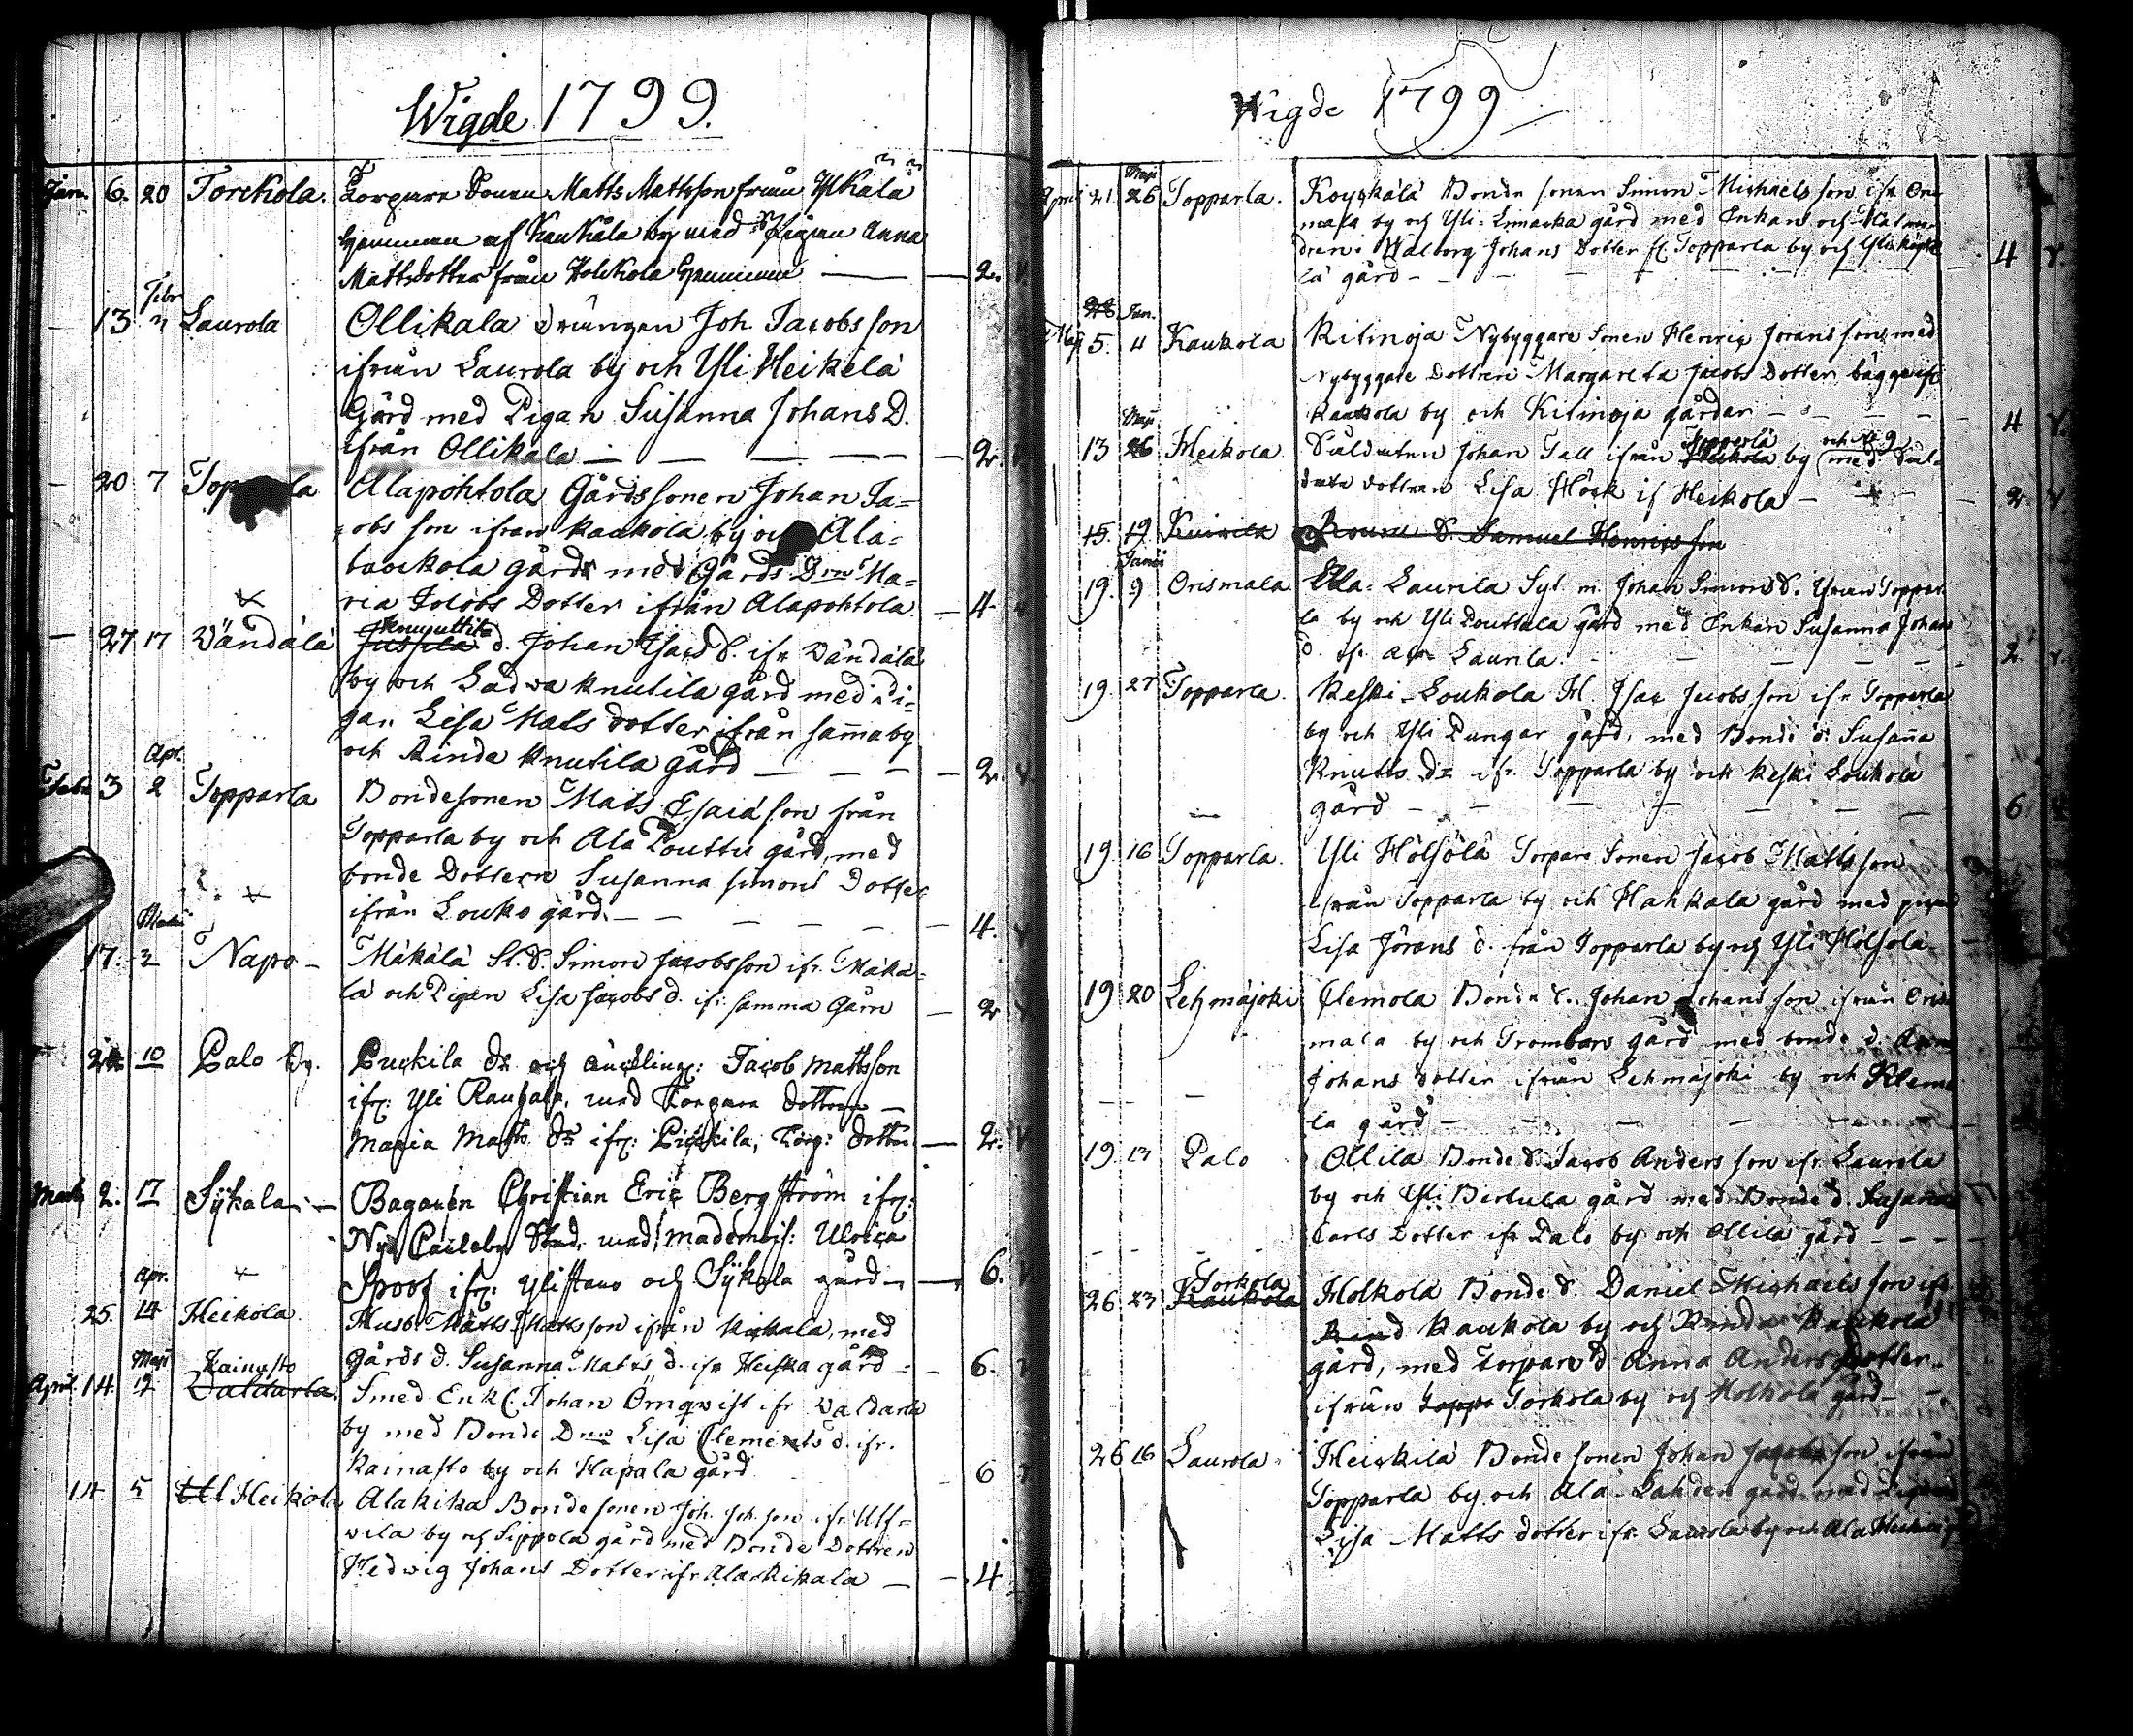 Wigde 1799.
Jan. 6. 20 Torckola. Torpare Sonen Matts Mattsson från Ylkälä
hemman af Kaukåla by med Pigan Anna
Mattsdotter från Holckola Hemman — 2.
Febr
13 Laurola Ollikala drängen Joh. Jacobs son
ifrån Laurola by och Yli Heikilä
Gård med Pigan Susanna Johans D.
ifrån Ollikala — 2.
20 7 Alapohtola Gårdssonen Johan Ja-
cobs son ifrån Kaukola by och Ala-
gårds med Gårds Drn Ma-
ria Jacobs Dotter ifrån Alapohtola — 4.
27 17 Wändälä Knuuttila
Jussila d. Johan Isacs S. ifr Wändälä
by och Ladva Knutila gård med Pi-
gan Lisa Mats dotter ifrån samma by
och Rinda Knutila gård — 2. v
Apr.
Febr 3 2 Topparla Bondesonen Mats Esaiæ son från
Topparla by och Ala Pouttu gård, med
bonde Dottern Susanna Simons Dotter
ifrån Louko gård. — 4. v
17. 3 Napo - Mäkälä Sl. S. Simon Jacobsson ifr. Mäkä-
lä och Pigan Lisa Jacobs d. ifr: samma Gård — 2 v
24 10 Palo By. Puckila Dr. och Jacob Mattsson
ifr: Yli Rauhala, med Torpare dottren —
Maria Matts Dr ifr: Pickila, Torp: dotter — 2. v
Martz 2. 17 Sykälä — Bagaren Christian Eric Bergström ifr:
Ny Carleby Stad, med Mademois: Ulrica
Spoof ifr: Ylistaro och Sykälä gård — 6. v
Apr.
25. 14 Heikola. Husb. Matts Matts son ifrån Kickala, med
Gårds d. Susanna Matts d. ifr Heiska gård - 6. v
Maji Kainasto
April 14. 12 Waldarla. Smed. Enkl. Johan Örnqvist ifr Waldarla
by med Bonde Dren Lisa Clements d. ifr.
Kainasto by och Hapala gård 6
14. 5 Heikola Alakika Bonde sonen Joh. Joh. son ifr. Ulf-
vila by och Sippola gård med Bonde Dottren
Hedvig Johans Dotter ifr Alarkikala — 4
Wigde 1799
Maji
April 21 26 Topparla. Koyskälä Bonde sonen Simon Michaels son ifr Oris
mala by och Yli-Linnacka gård med Enkan och
Walborg Johans Dotter fr. Topparla by och Yli
lä gård — 4 v.
28 Jun.
Maj 5. 11 Kaukola Kitinoja Nybyggare Sonen Henric Jörans son, med
Nybyggare Dottren Margareta Jacobs Dotter bägge ifr
Kaukola by och Kitinoja gårdar — 4 v.
Maji
13 26 Heikola Soldaten Johan Tall ifrån Topparla
Heikola by med Sol-
date dottren Lisa Hörk if Heikola — 2. v
15. 19 Bonde S. Samuel Henrics son
Junii
19. 9 Orismala Ala-Laurila Syt. m. Johan Simons S. ifrån Toppar-
la by och Yli Pouttula gård med Enkan Susanna Johans
d. ifr. Ala Laurila. — 2. v.
19. 27 Topparla. Keski-Loukola M. Isac Jacobs son ifr Topparla
by och Yli Pungar gård, med Bonde d: Susanna
Knuts Dr ifr. Topparla by och Keski Loukola
gård — 6
19 16 Topparla. Yli Hölsölä Torpare Sonen Jacob Matts son
ifrån Topparla by och Hahkala gård med pigan
Lisa Jörans d. från Topparla by och Yli Hölsölä
19 20 Lehmäjoki Clemola Bonde S. Johan Johans son ifrån Oris
mala by och Trombars gård med bonde d.
Johans Dotter ifrån Lehmäjoki by och Klemo
la gård —
19 13 Palo Ollila Bonde S. Jacob Anders son ifr. Laurola
by och Yli Bertula gård med Bonde d. Susanna
Carls Dotter ifr Palo by och Ollila gård —
Torkola
26 23 Kaukola Holkola Bonde S. Daniel Michaels son ifr
Rind Kaukola by och Rinda Kaukola
gård, med Torpare d. Anna Anders Dotter
ifrån Toppa Torkola by och Holkola gård —
26 16 Laurola. Heickilä Bonde sonen Johan Jacobs son ifrån
Topparla by och Ala-Lahden gård med Pigan
Lisa Matts dotter ifr. Laurola by och Ala Heickilä